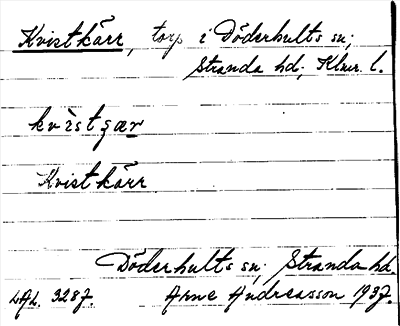 Kvistkärr, torp i Döderhults sn;
Stranda hd; Klmr. l.
kvìstçær
Kvistkärr
Döderhults sn; Stranda hd.
LAL. 3287. Arne Andreasson 1937.